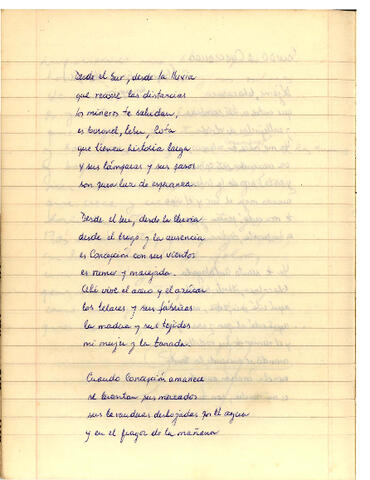 Desde el Sur, desde la lluvia
que recorre las distancias
los mineros te saludan,
es Coronel, Lebu, Lota
que tienen historia larga
y sus lámparas y sus pasos
son
de esperanza.
Desde el sur, desde la lluvia
desde el trigo y la ausencia
es Concepción con sus vientos
es rumor y marejada.
Allí vive el acero y el azúcar
los telares y sus fábricas
la madera y sus tejidos
mi mujer y la
Cuando Concepción amanece
se levantan sus mercados
sus lavanderas deshojadas por el agua
y en el fragor de la mañana